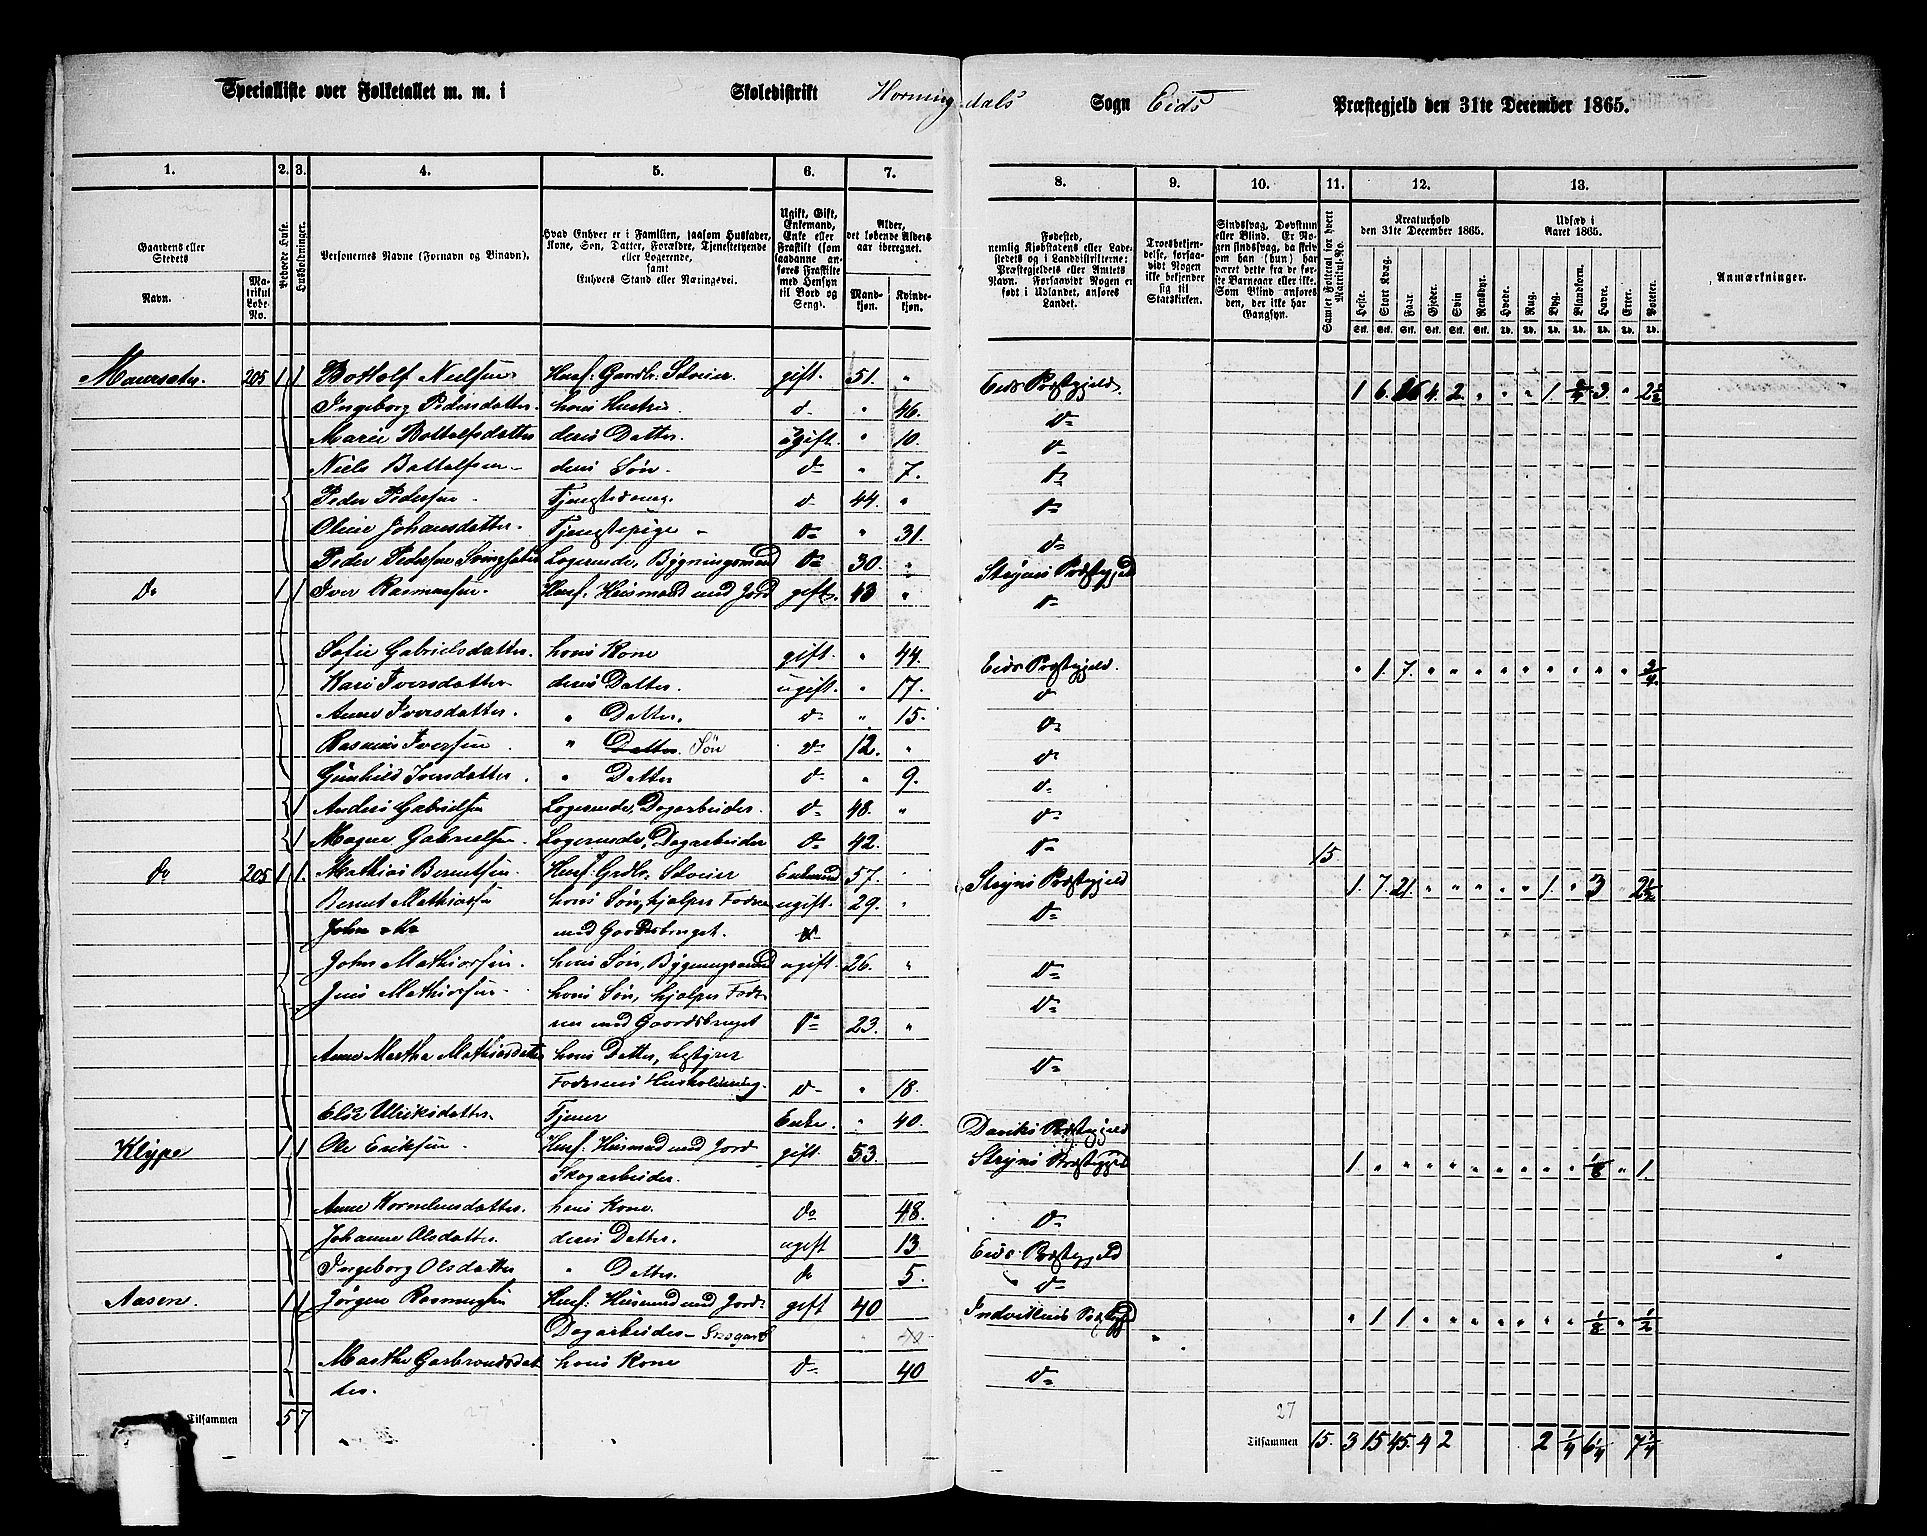 Specialliste over Folketallet m. m. i Skoledistrikt Horningdals Sogn Eids Præstegjeld den 31te December 1865.
1. 2. 3. 4. 5. 6. 7. 8. 9. 10. 11. 12. 13.
Gaardens eller Stedets Navn. Matrikul Løbe-No. Beboede Huse. Husholdninger. Personernes Navne (Fornavn og Binavn). Hvad Enhver er i Familien, saasom Husfader, Kone, Søn, Datter, Forældre, Tjenestetyende eller Logerende, samt Enhvers Stand eller Næringsvei. Ugift, Gift, Enkemand, Enke eller Fraskilt (som saadanne anføres Fraskilte med Hensyn til Bord og Seng). Alder, det løbende Alders aar iberegnet. Mandkjøn. Kvindekjøn.
Fødested, nemlig Kjøbstadens eller Ladestedets og i Landdistrikterne: Præstegjeldets eller Amtets Navn. Forsaavidt Nogen er født i Udlandet, anføres Landet. Troesbekjendelse, forsaavidt Nogen ikke bekjender sig til Statskirken. Sindssvag, Døvstum eller Blind. Er Nogen sindssvag, da skrives om han (hun) har været dette fra de første Barneaar eller ikke. Som Blind anføres den, der ikke har Gangsyn. Samlet Folketal for hvert Matrikul-No. Kreaturhold den 31te December 1865. Heste. Stort Kvæg. Faar. Gjeder. Svin. Rensdyr. Udsæd i Aaret 1865. Hvede. Rug. Byg. Blandkorn. Havre. Erter. Poteter. Anmærkninger.
Maurseter. 205 1 1 Bottolf Nielsen Husf. Gaardb. Selveier. gift. 51. " Eids Præstegjeld. 1 6. 16 4. 2. " " " 1 1/4 3. " 2 1/2
Ingeborg Pedersdatter. hans Hustru d- " 46. d-
Marie Bottolfsdatter deres Datter. ugift. " 10. d-
Niels Bottolfsen - deres Søn. d- " 7. d-
Peder Pedersen - Tjenestedreng. d- 44. " d-
Oline Johansdatter. Tjenestepige - d- " 31. d-
Peder Pedersen Logerende, Bygningsmand d- 30. " Stryns Præstegjeld
do 1 1 Iver Rasmussen. Husf. Huusmand med Jord gift. 43 " d-
Sofie Gabrielsdatter. hans Kone gift. " 44. Eids Præstegjeld. " 1. 7. " " " " " " " " " 3/4
Kari Iversdatter deres Datter. ugift. " 17. d-
Anne Iversdatter. " Datter. d- " 15. d-
Rasmus Iversen " Datter. Søn d- 12. " d-
Gunhild Iversdatter. " Datter d- " 9. d-
1 Anders Gabrielsen Logerende, Dagarbeider. d- 48. " d-
1 Magne Gabrielsen. Logerende, Dagarbeider d- 42. d- 15
do 205 1 1. Mathias Berentsen. Husf. Grdb. Selveier Enkemand 57. " Stryns Præstegjeld 1. 7. 21. " " " " " 1 " 3 " 2 1/2
Berent Mathiassen hans Søn, hjælper Faderen ugift. 29. " d-
John med Gaardsbruget. d-
John Mathiassen. hans Søn, Bygningsmand ugift. 26. " d-
Jens Mathiassen. hans Søn, hjælper Fade- d-
ren med Gaardsbruget d- 23. "
Anne Martha Mathiasdatter hans Datter, bestyrer d-
Faderens Husholdning. d- " 18.
Else Ulriksdatter. Tjener Enke. " 40. Daviks Præstegjeld
Klype 1 1 Ole Eriksen. Husf. Huusmand med Jord gift. 53. Stryns Præstegjeld 1. " " " " " " " " " 1/8 " 1.
Skogarbeider.
Anne Korneliusdatter. hans Kone. do 48. d-
Johanne Olsdatter. deres Datter. ugift 13. Eids Præstegjeld
Ingeborg Olsdatter " Datter. do 5. d-
Aasen. 1 1 Jørgen Rasmussen Husf. Huusmand med Jord. gift 40 Indvikens Præstegjeld " 1 1 " " " " " " " 1/8 " 1/2
Dagarbeider- Skogarb 40
Marthe Garbrandsdat hans Kone d- 40 d-
ter.
Tilsammen 5 7 27 27 Tilsammen 15. 3 15 45. 4 2 2 1/4 6 1/4 7 1/4